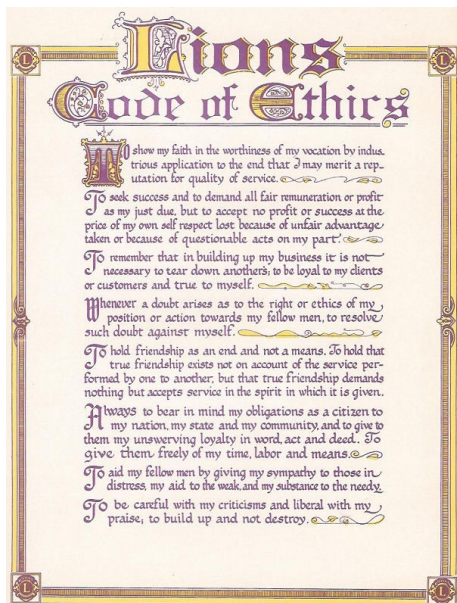 Lions
Code of Ethics
To show my faith in the worthiness of my vocation by indus-
trious application to the end that I may merit a rep-
utation for quality of service.
To seek success and to demand all fair remuneration or profit
as my just due, but to accept no profit or success at the
price of my own self respect lost because of unfair advantage
taken or because of questionable acts on my part.
To remember that in building up my business it is not
necessary to tear down another's; to be loyal to my clients
or customers and true to myself.
Whenever a doubt arises as to the right or ethics of my
position or action towards my fellow men, to resolve
such doubt against myself.
To hold friendship as an end and not a means. To hold that
true friendship exists not on account of the service per-
formed by one to another, but that true friendship demands
nothing but accepts service in the spirit in which it is given.
Always to bear in mind my obligations as a citizen to
my nation, my state and my community, and to give to
them my unswerving loyalty in word, act and deed. To
give them freely of my time, labor and means.
To aid my fellow men by giving my sympathy to those in
distress, my aid to the weak, and my substance to the needy.
To be careful with my criticisms and liberal with my
praise; to build up and not destroy.
L
L
L
L